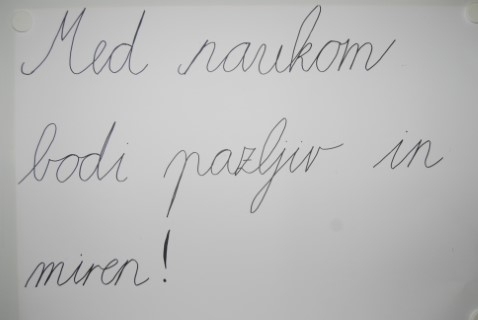 Med naukom
bodi pazljiv in
miren!